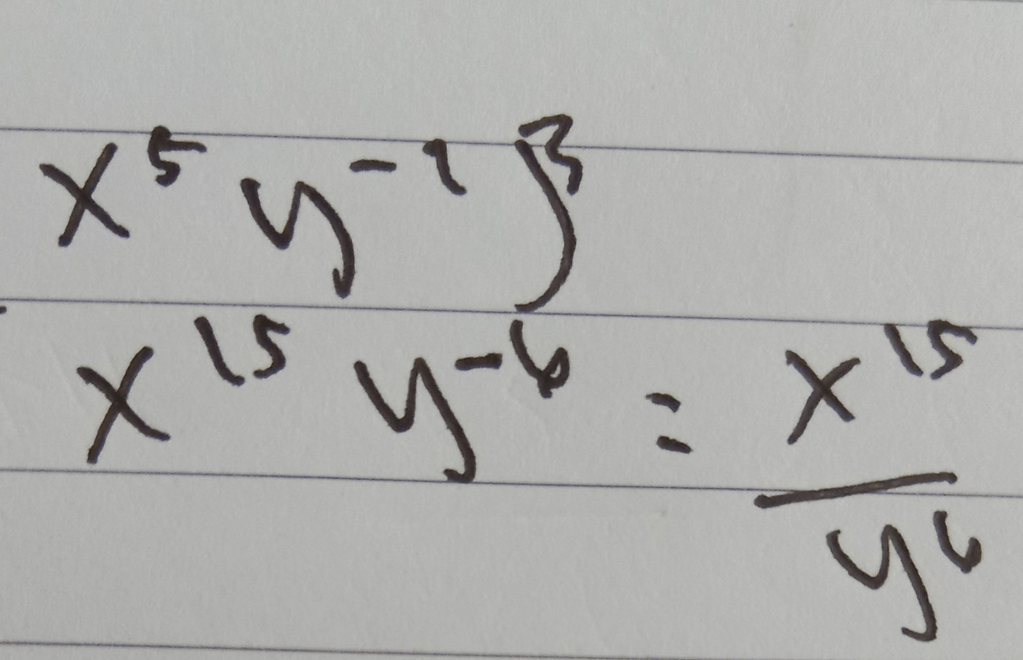 x⁵ y⁻²)³
x¹⁵ y⁻⁶ = x¹⁵/y⁶